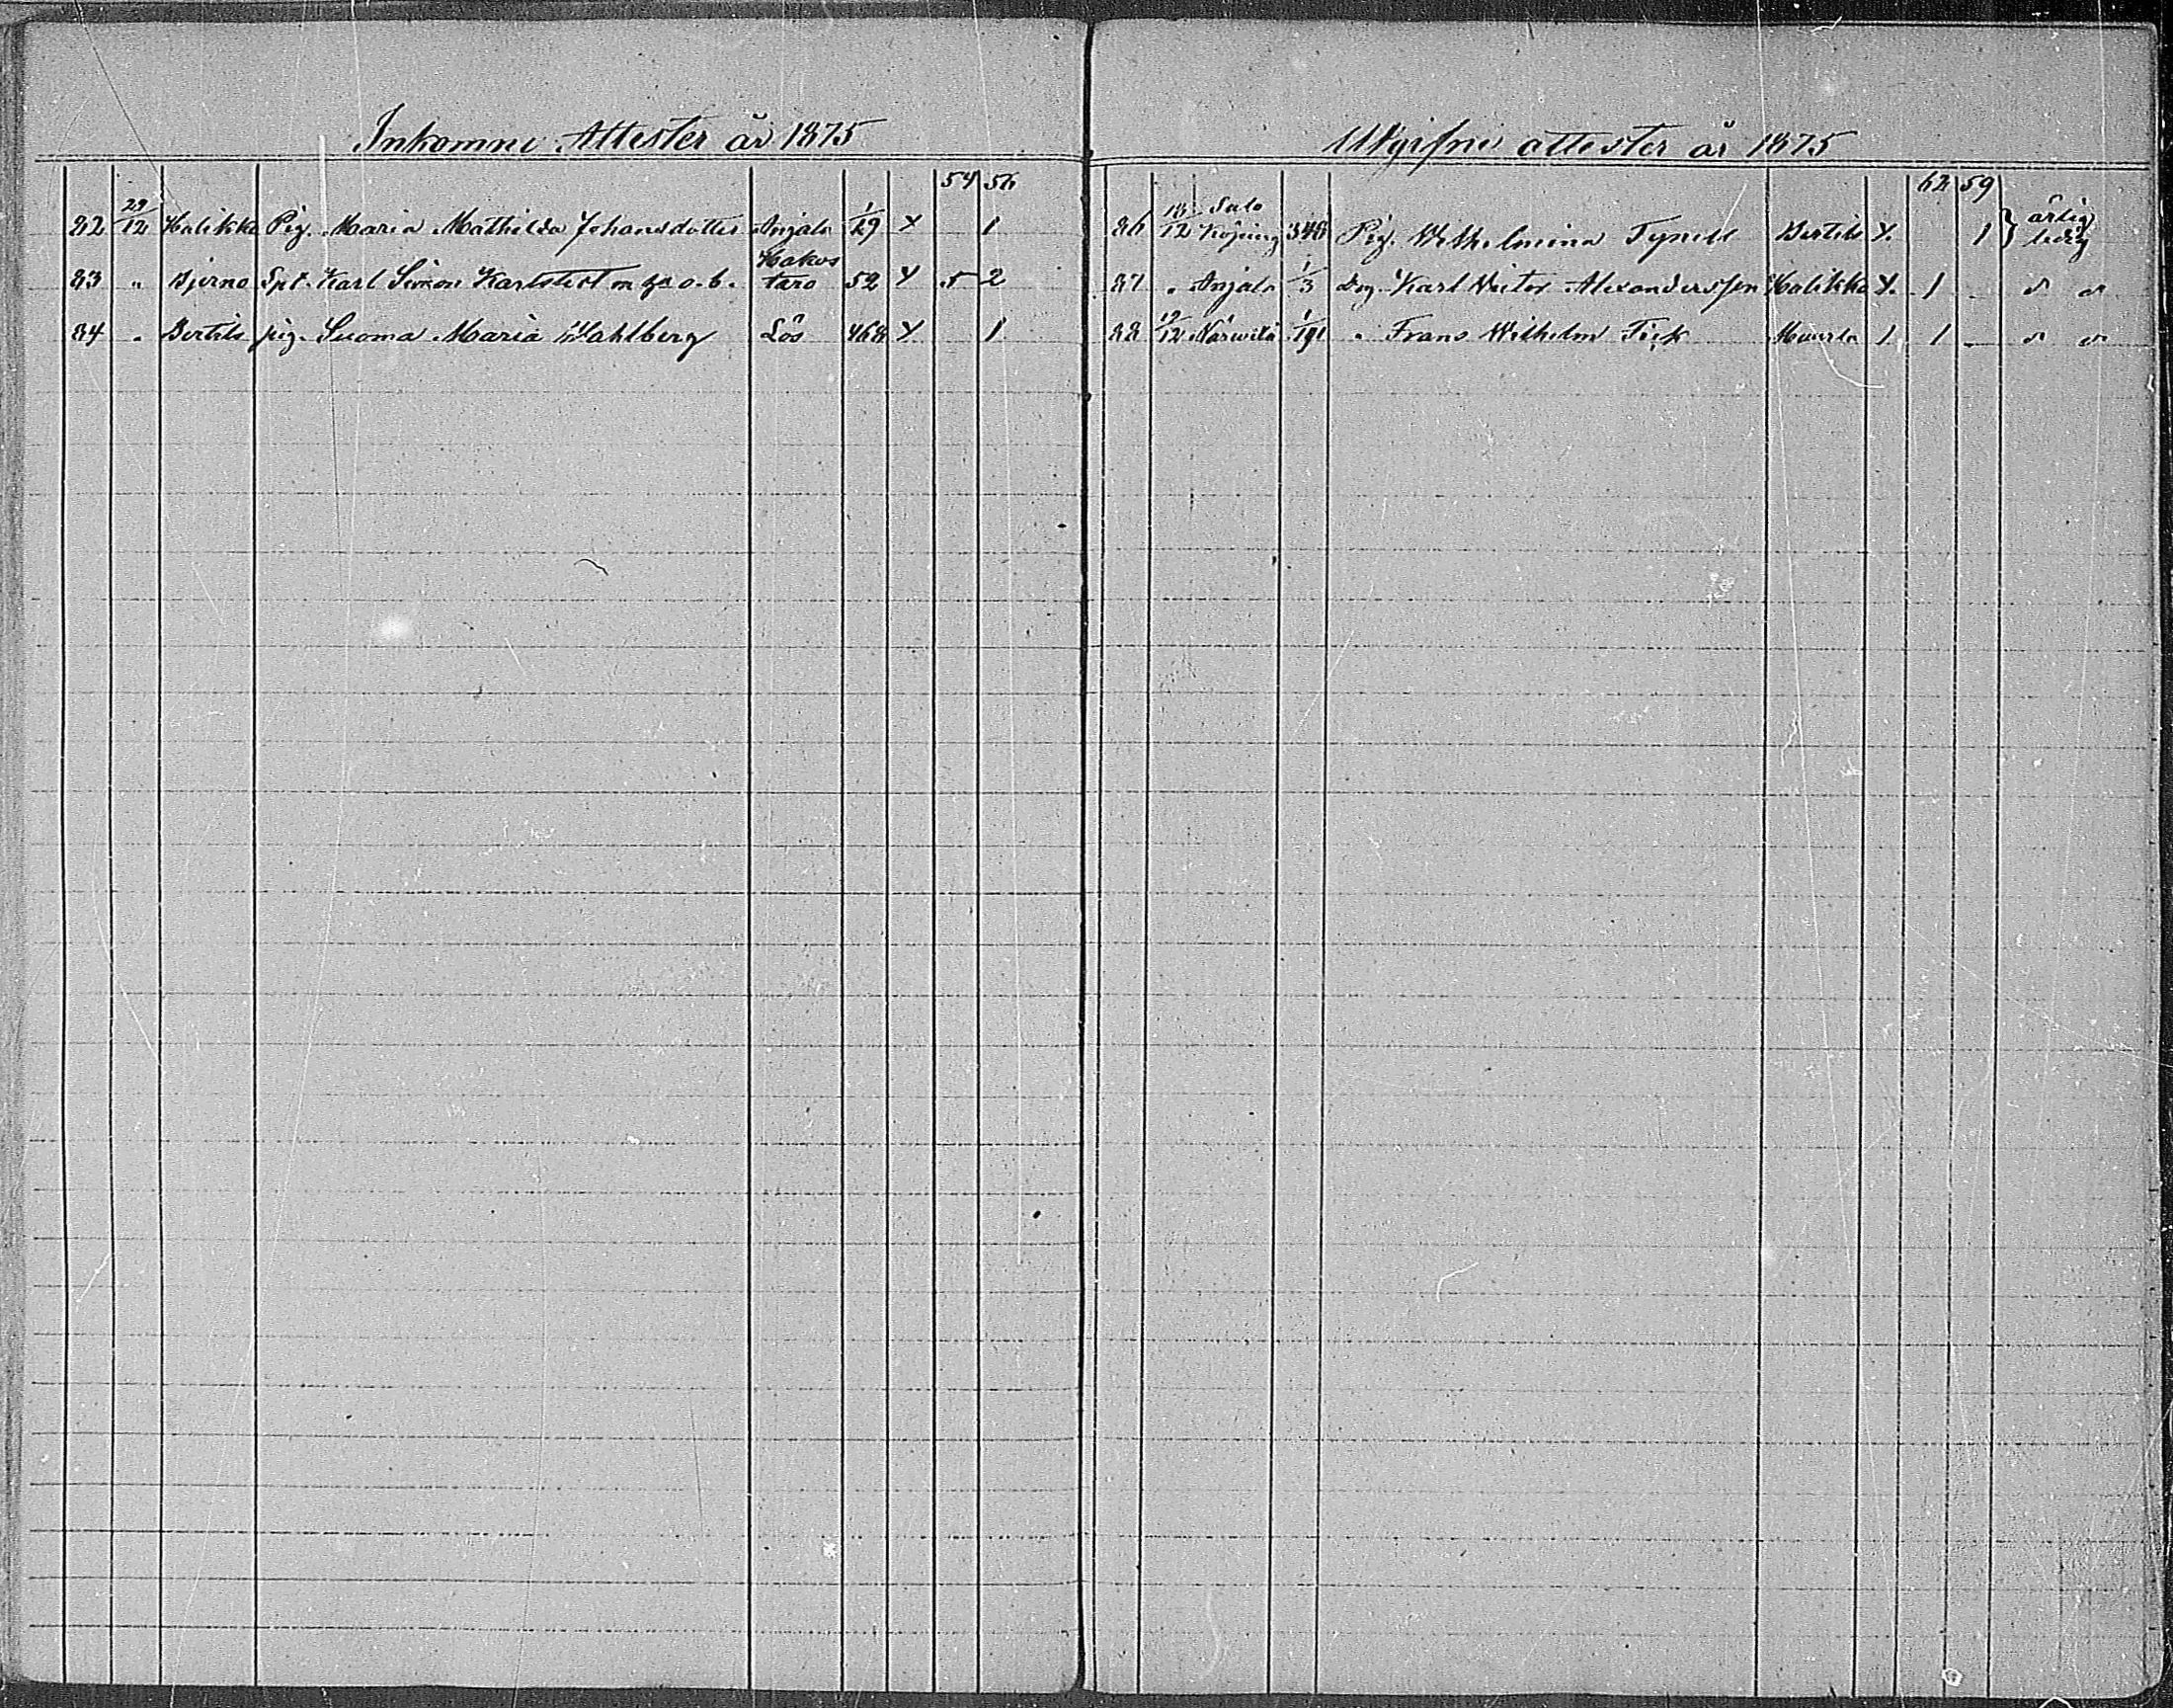 Inkomne Attester år 1875
54 56
82 29/12 Halikko Pig. Maria Mathilda Johansdotter Anjala 1/19 X 1
83 " Bjerno Spt. Karl Simon Karlstedt m. h. o. b. Hakostaro 52 X 5 2
84 " Bertils pig. Suoma Maria Wahlberg Lös 468 X 1
Utgifne attester år 1875
62 59
86 18/12 Salo Köping 348 Pig. Wilhelmina Tynell Bertils X. 1 } ärlig ledig
87 " Anjala 1/3 Dng. Karl Victor Alexandersson Halikko X. 1 - d d
88 19/12 Närwilä 1/191 " Frans Wilhelm Fick Muurla 1 1 - d d